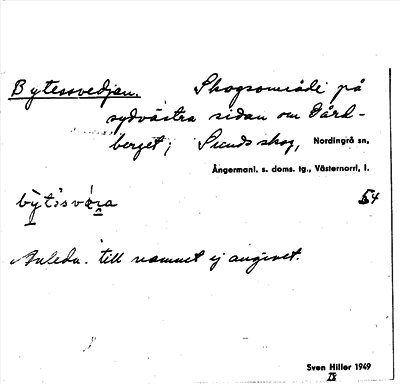 Bytessvedjan. Skogsområde på
sydvästra sidan om Gård-
berget; Sunds skog, Nordingrå sn,
Ångermanl. s. doms. tg., Västernorrl, l.
54
Anledn. till namnet ej angivet.
Sven Hiller 1949